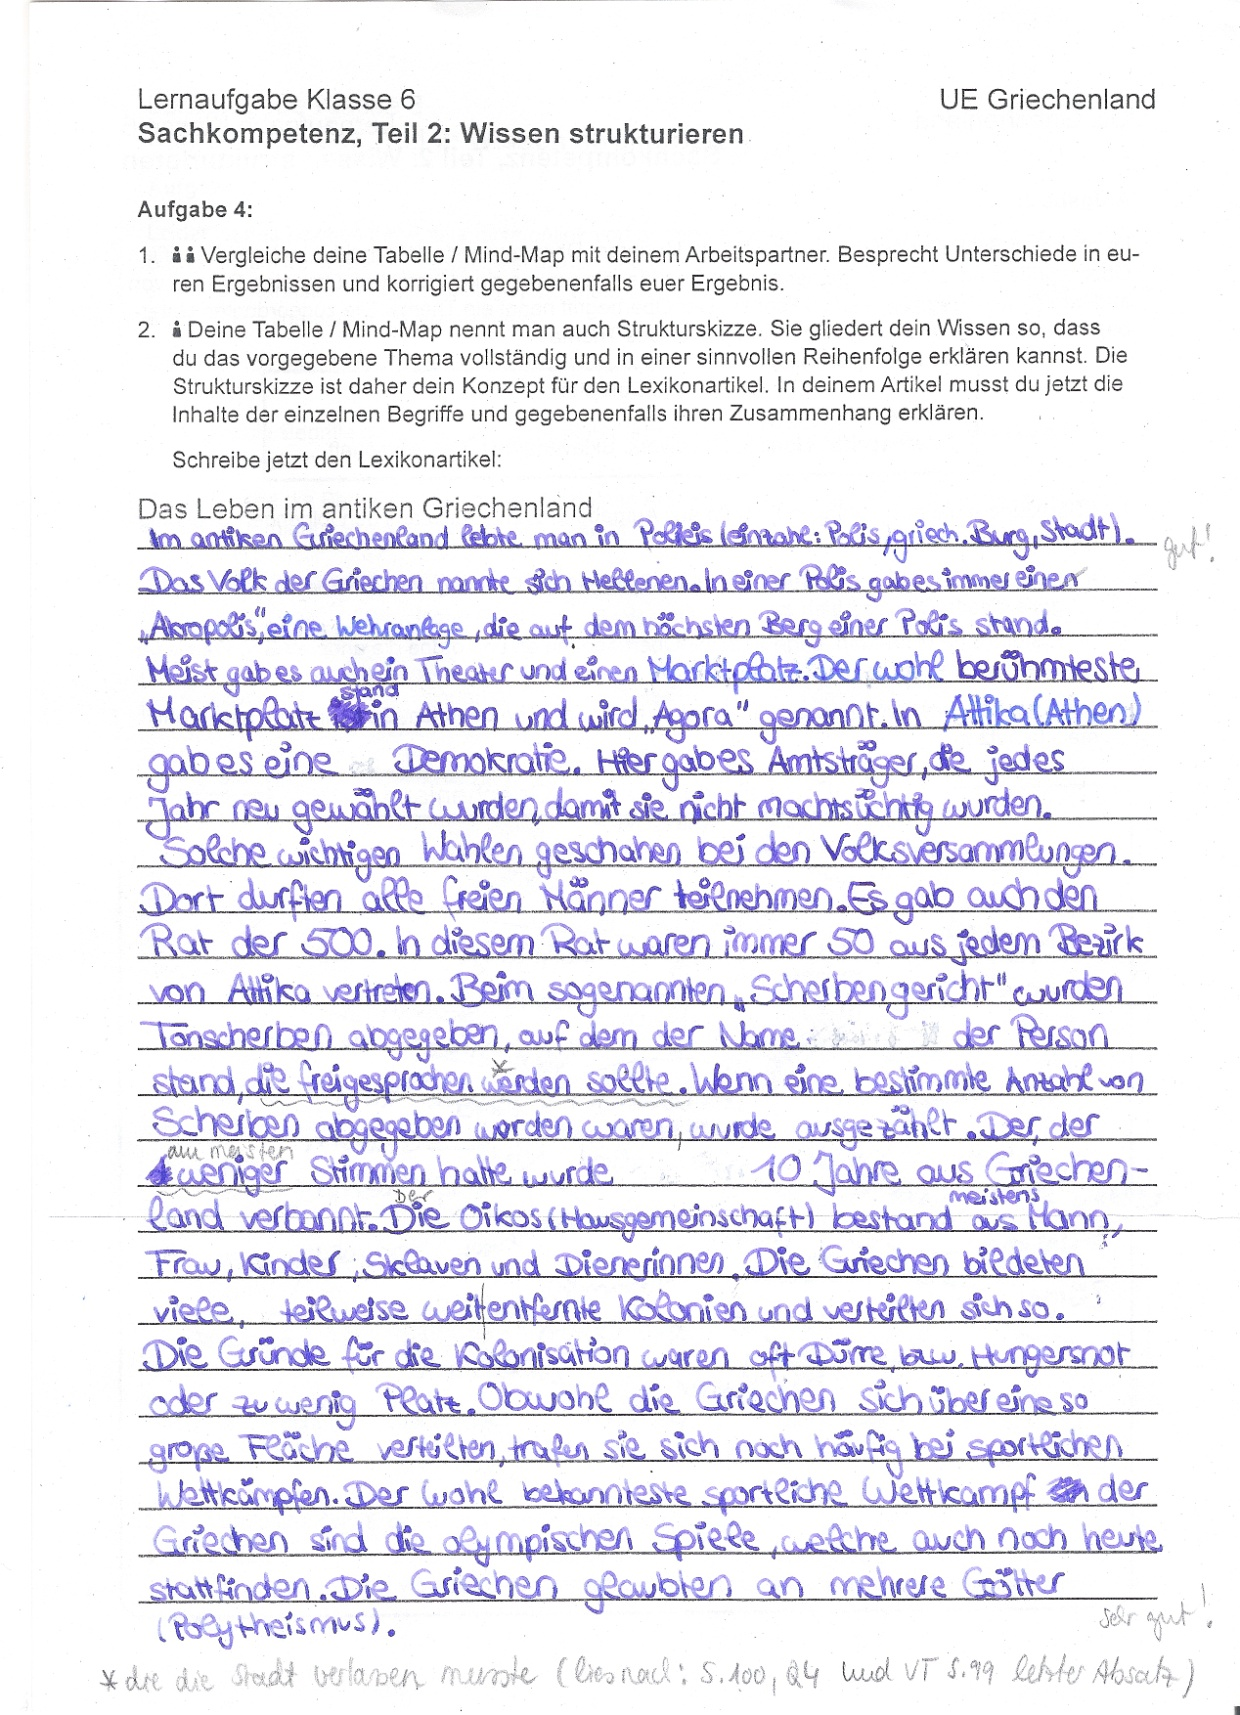 Lernaufgabe Klasse 6 UE Griechenland
Sachkompetenz, Teil 2: Wissen strukturieren
Aufgabe 4:
1. Vergleiche deine Tabelle / Mind-Map mit deinem Arbeitspartner. Besprecht Unterschiede in eu-
ren Ergebnissen und korrigiert gegebenenfalls euer Ergebnis.
2. Deine Tabelle / Mind-Map nennt man auch Strukturskizze. Sie gliedert dein Wissen so, dass
du das vorgegebene Thema vollständig und in einer sinnvollen Reihenfolge erklären kannst. Die
Strukturskizze ist daher dein Konzept für den Lexikonartikel. In deinem Artikel musst du jetzt die
Inhalte der einzelnen Begriffe und gegebenenfalls ihren Zusammenhang erklären.
Schreibe jetzt den Lexikonartikel:
Das Leben im antiken Griechenland
Im antiken Griechenland lebte man in Poleis (einzahl: Polis, griech. Burg, Stadt). gut!
Das Volk der Griechen nannte sich Hellenen. In einer Polis gab es immer einen
„Akropolis", eine Wehranlage, die auf dem höchsten Berg einer Polis stand.
Meist gab es auch ein Theater und einen Marktplatz. Der wohl berühmteste
stand
Marktplatz in Athen und wird „Agora" genannt. In Attika (Athen)
gab es eine Demokratie. Hier gab es Amtsträger, die jedes
Jahr neu gewählt wurden, damit sie nicht machtsüchtig wurden.
Solche wichtigen Wahlen geschahen bei den Volksversammlungen.
Dort durften alle freien Männer teilnehmen. Es gab auch den
Rat der 500. In diesem Rat waren immer 50 aus jedem Bezirk
von Attika vertreten. Beim sogenannten „Scherbengericht" wurden
Tonscherben abgegeben, auf dem der Name der Person
stand, die freigesprochen werden sollte.* Wenn eine bestimmte Anzahl von
Scherben abgegeben worden waren, wurde ausgezählt. Der, der
am meisten
weniger Stimmen hatte wurde 10 Jahre aus Griechen-
Der meistens
land verbannt. Die Oikos (Hausgemeinschaft) bestand aus Mann,
Frau, Kinder, Sklaven und Dienerinnen. Die Griechen bildeten
viele, teilweise weit entfernte Kolonien und verteilten sich so.
Die Gründe für die Kolonisation waren oft Dürre, bzw. Hungersnot
oder zu wenig Platz. Obwohl die Griechen sich über eine so
große Fläche verteilten, trafen sie sich noch häufig bei sportlichen
Wettkämpfen. Der wohl bekannteste sportliche Wettkampf der
Griechen sind die olympischen Spiele, welche auch noch heute
stattfinden. Die Griechen glaubten an mehrere Götter
(Polytheismus). sehr gut!
* die die Stadt verlassen musste (lies nach: S. 100, Q4 und VT S. 99 letzter Absatz)